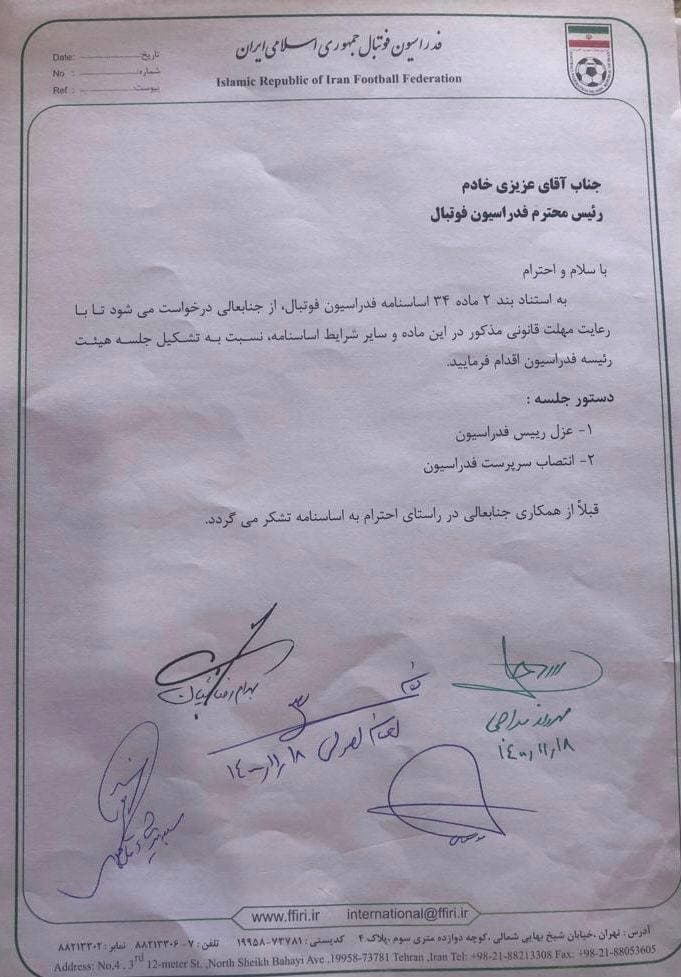 فدراسیون فوتبال جمهوری اسلامی ایران
Islamic Republic of Iran Football Federation
Date: تاریخ
No : شماره:
Ref : پیوست
جناب آقای عزیزی خادم
رئیس محترم فدراسیون فوتبال
با سلام و احترام
به استناد بند ۲ ماده ۳۴ اساسنامه فدراسیون فوتبال، از جنابعالی درخواست می شود تا با
رعایت مهلت قانونی مذکور در این ماده و سایر شرایط اساسنامه، نسبت به تشکیل جلسه هیئت
رئیسه فدراسیون اقدام فرمایید.
دستور جلسه :
۱- عزل رییس فدراسیون
۲- انتصاب سرپرست فدراسیون
قبلاً از همکاری جنابعالی در راستای احترام به اساسنامه تشکر می گردد.
بهرام رضائیان
۱۴۰۰/۱۱/۱۸
۱۴۰۰/۱۱/۱۸
www.ffiri.ir international@ffiri.ir
آدرس : تهران ،خیابان شیخ بهایی شمالی ،کوچه دوازده متری سوم ،پلاک ۴ کدپستی : ۷۳۷۸۱-۱۹۹۵۸ تلفن : ۷-۸۸۲۱۳۳۰۶ نمابر : ۸۸۲۱۳۳۰۲
Address: No,4 , 3rd 12-meter St. ,North Sheikh Bahayi Ave .,19958-73781 Tehran ,Iran Tel: +98-21-88213308 Fax: +98-21-88053605